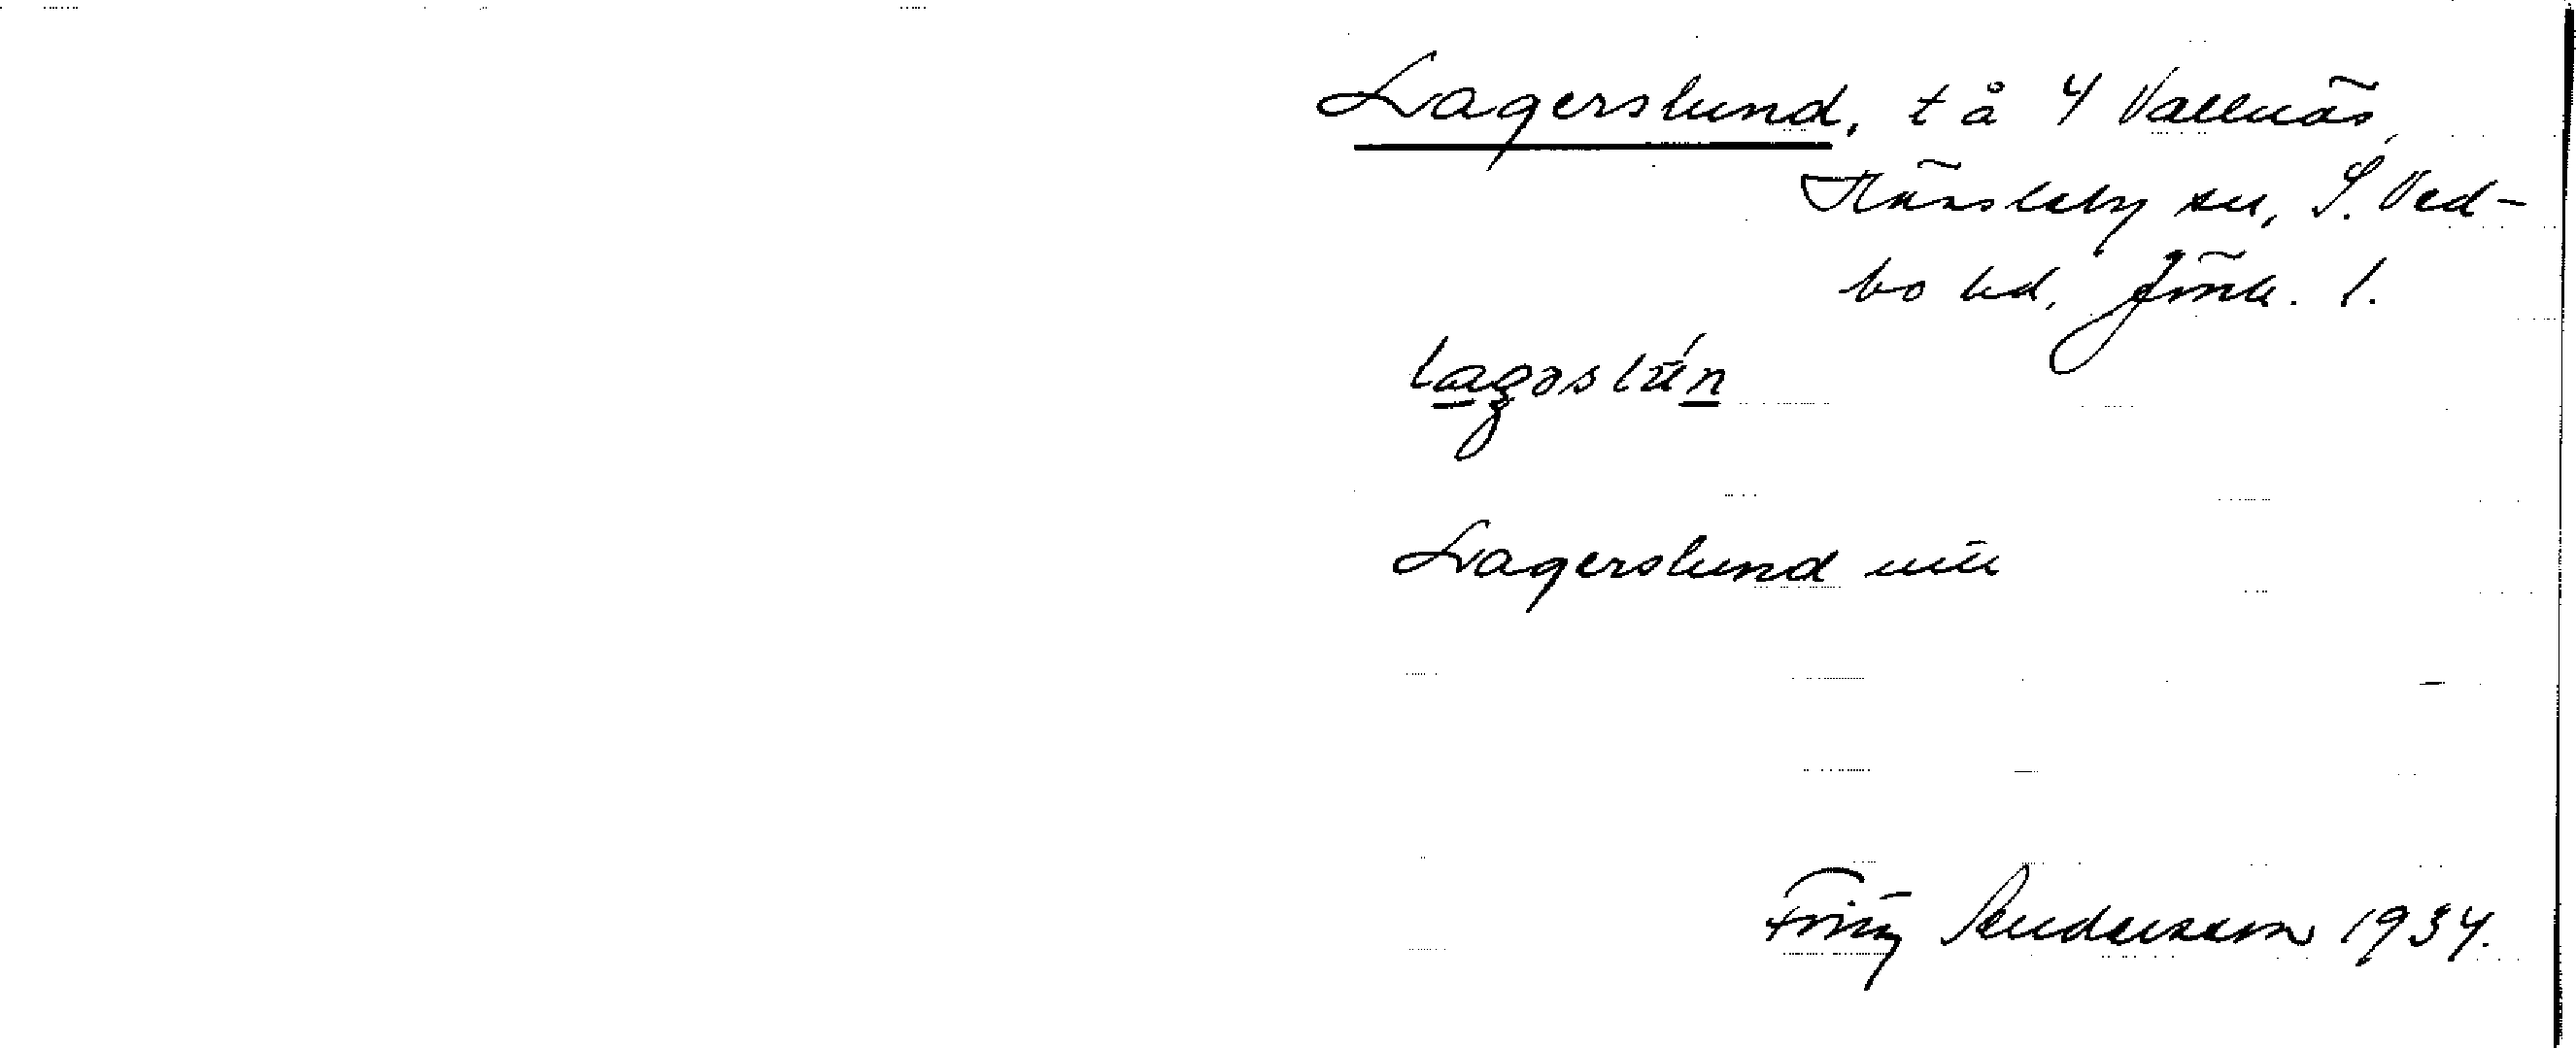 Lagerslund, t å 4 Vallnäs,
Hässleby sn, S. Ved-
bo hd, Jönk. l.
lagəslún
Lagerslund
Fritz Andersson 1934.